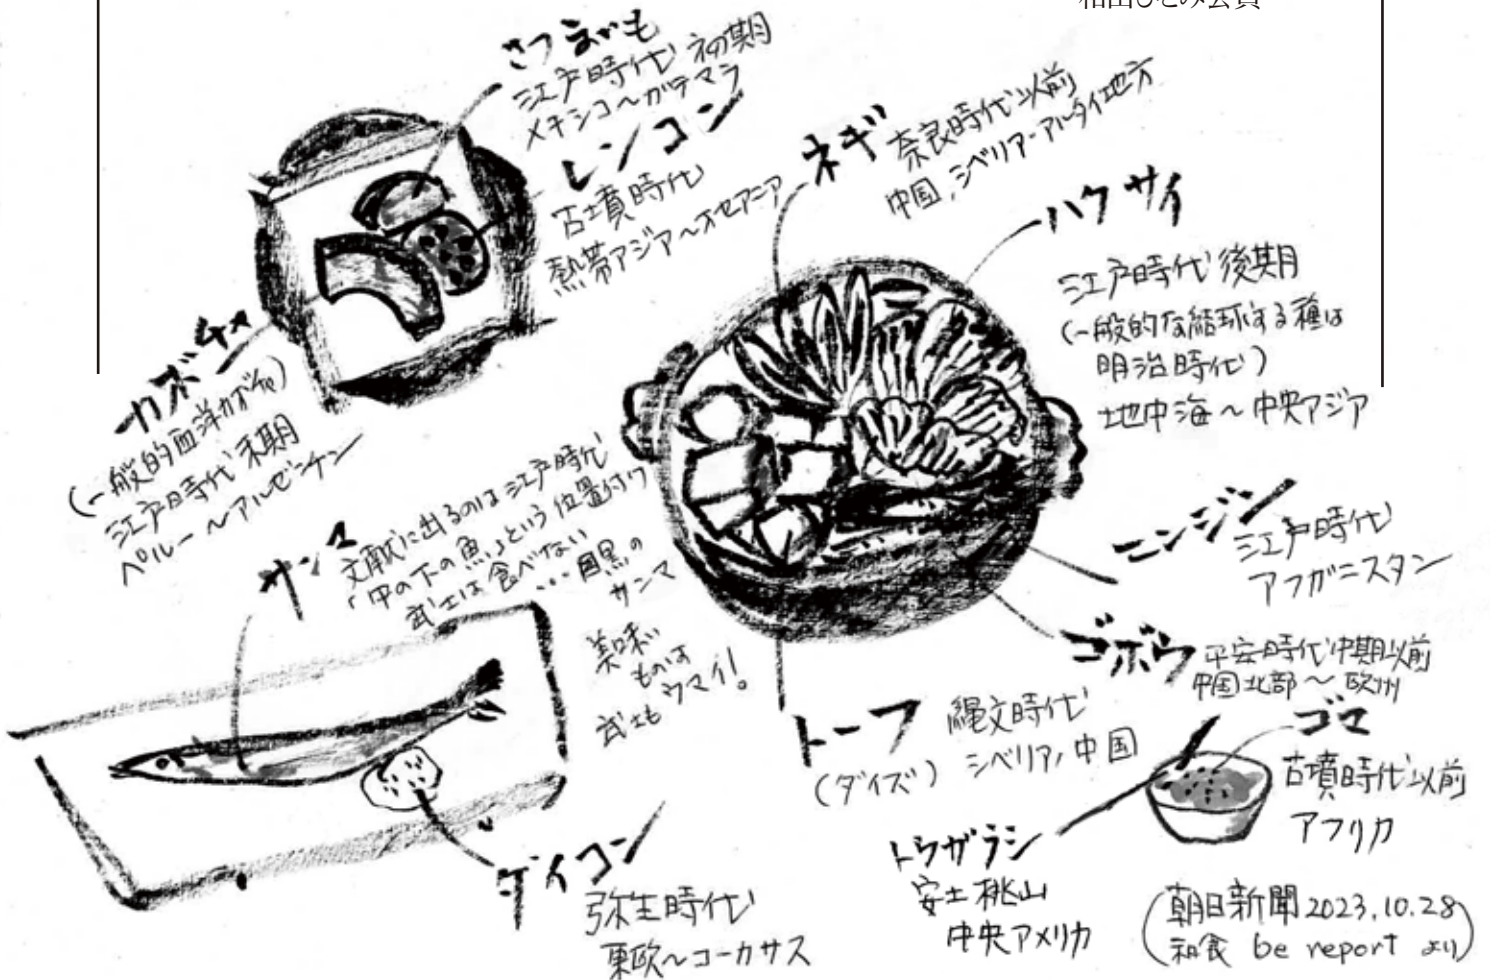 さつまいも
江戸時代 初期
メキシコ～ガテマラ
レンコン
古墳時代
熱帯アジア～オセアニア
ネギ
奈良時代以前
中国,シベリア・アルタイ地方
ハクサイ
江戸時代 後期
(一般的な結球する種は
明治時代)
地中海～中央アジア
カボチャ
(一般的西洋カボチャ)
江戸時代 末期
ペルー～アルゼンチン
サンマ
文献に出るのは江戸時代
「中の下の魚」という位置付け
武士は食べない
…目黒の
サンマ
美味い
ものは
武士も
ウマイ!
ニンジン
江戸時代
アフガニスタン
ゴボウ
平安時代中期以前
中国北部～欧州
トーフ
(ダイズ)
縄文時代
シベリア,中国
ゴマ
古墳時代以前
アフリカ
トウガラシ
安土桃山
中央アメリカ
ダイコン
弥生時代
東欧～コーカサス
(朝日新聞 2023.10.28
和食 be report より)